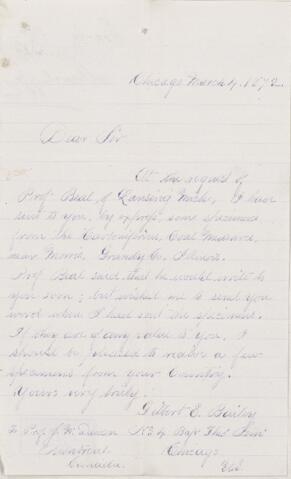 Chicago March 4. 1872.
Dear Sir
At the request of
Prof. Beal of Lansing Mich, I have
sent to you, by express some specimens
from the Carboniferous, Coal Measures,
near Morris, Grundy Co. Illinois.
Prof Beal said that he would write to
you soon; but wished me to send you
word when I had sent the specimens.
If they are of any value to you, I
should be pleased to receive a few
specimens from your Country.
Yours very truly.
Gilbert E. Bailey
To Prof. J. W. Dawson No 4 Bap. Theo. Sem
Montreal Chicago
Canada. Ill.